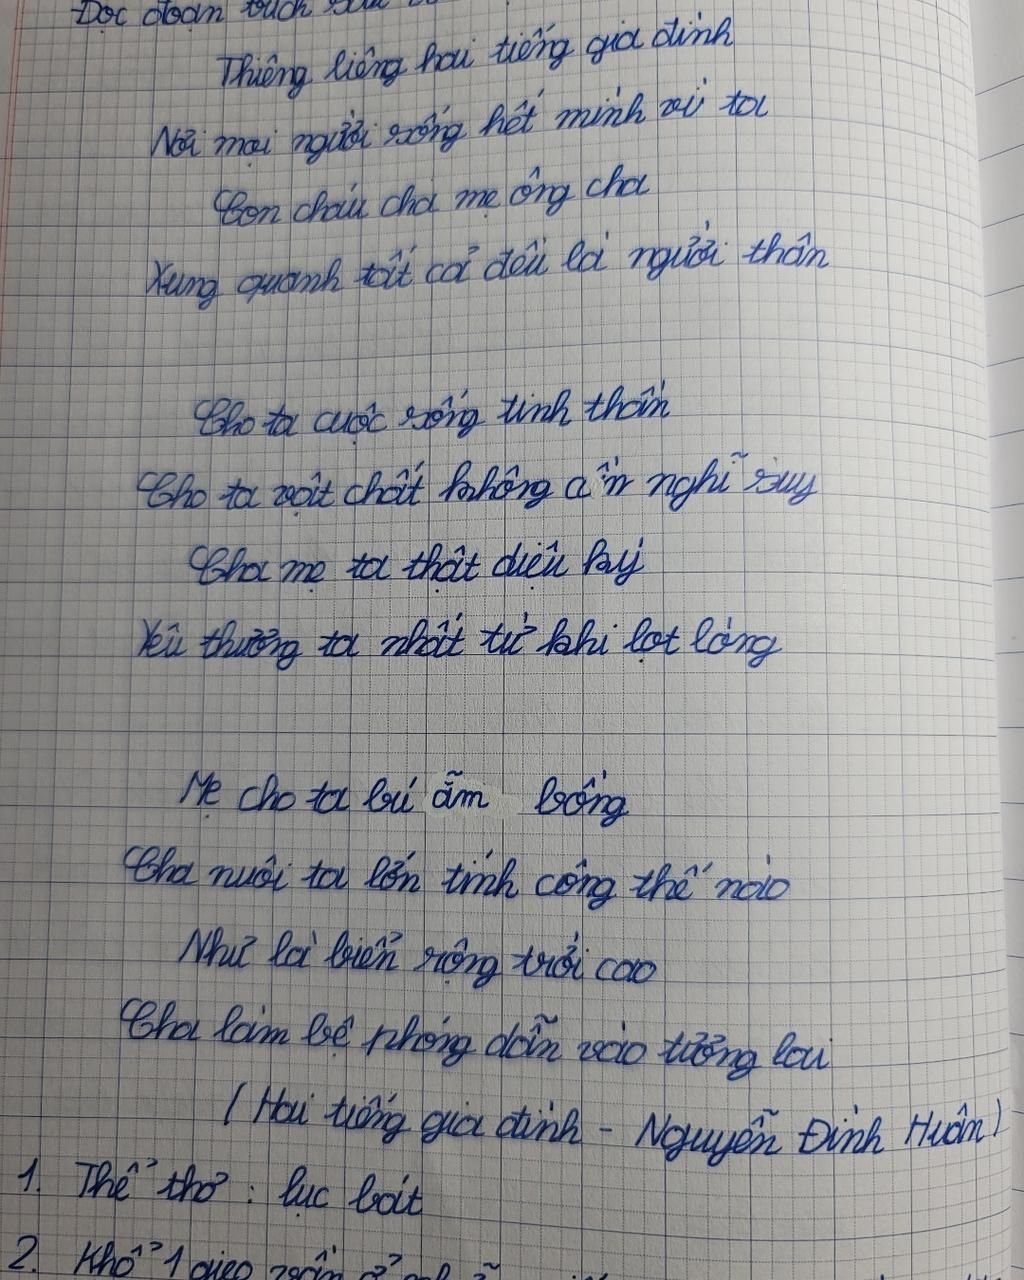 Đọc đoạn trích sau
Thiêng liêng hai tiếng gia đình
Nơi mọi người sống hết mình vì ta
Con cháu cha mẹ ông cha
Xung quanh tất cả đều là người thân
Cho ta cuộc sống tinh thần
Cho ta vật chất không cần nghĩ suy
Cha mẹ ta thật diệu kỳ
Yêu thương ta nhất từ khi lọt lòng
Mẹ cho ta bú ẵm bồng
Cha nuôi ta lớn tính công thế nào
Như là biển rộng trời cao
Cha làm bệ phóng dẫn vào tương lai
(Hai tiếng gia đình - Nguyễn Đình Huân)
1. Thể thơ : lục bát
2. Khổ 1 gieo vần ở